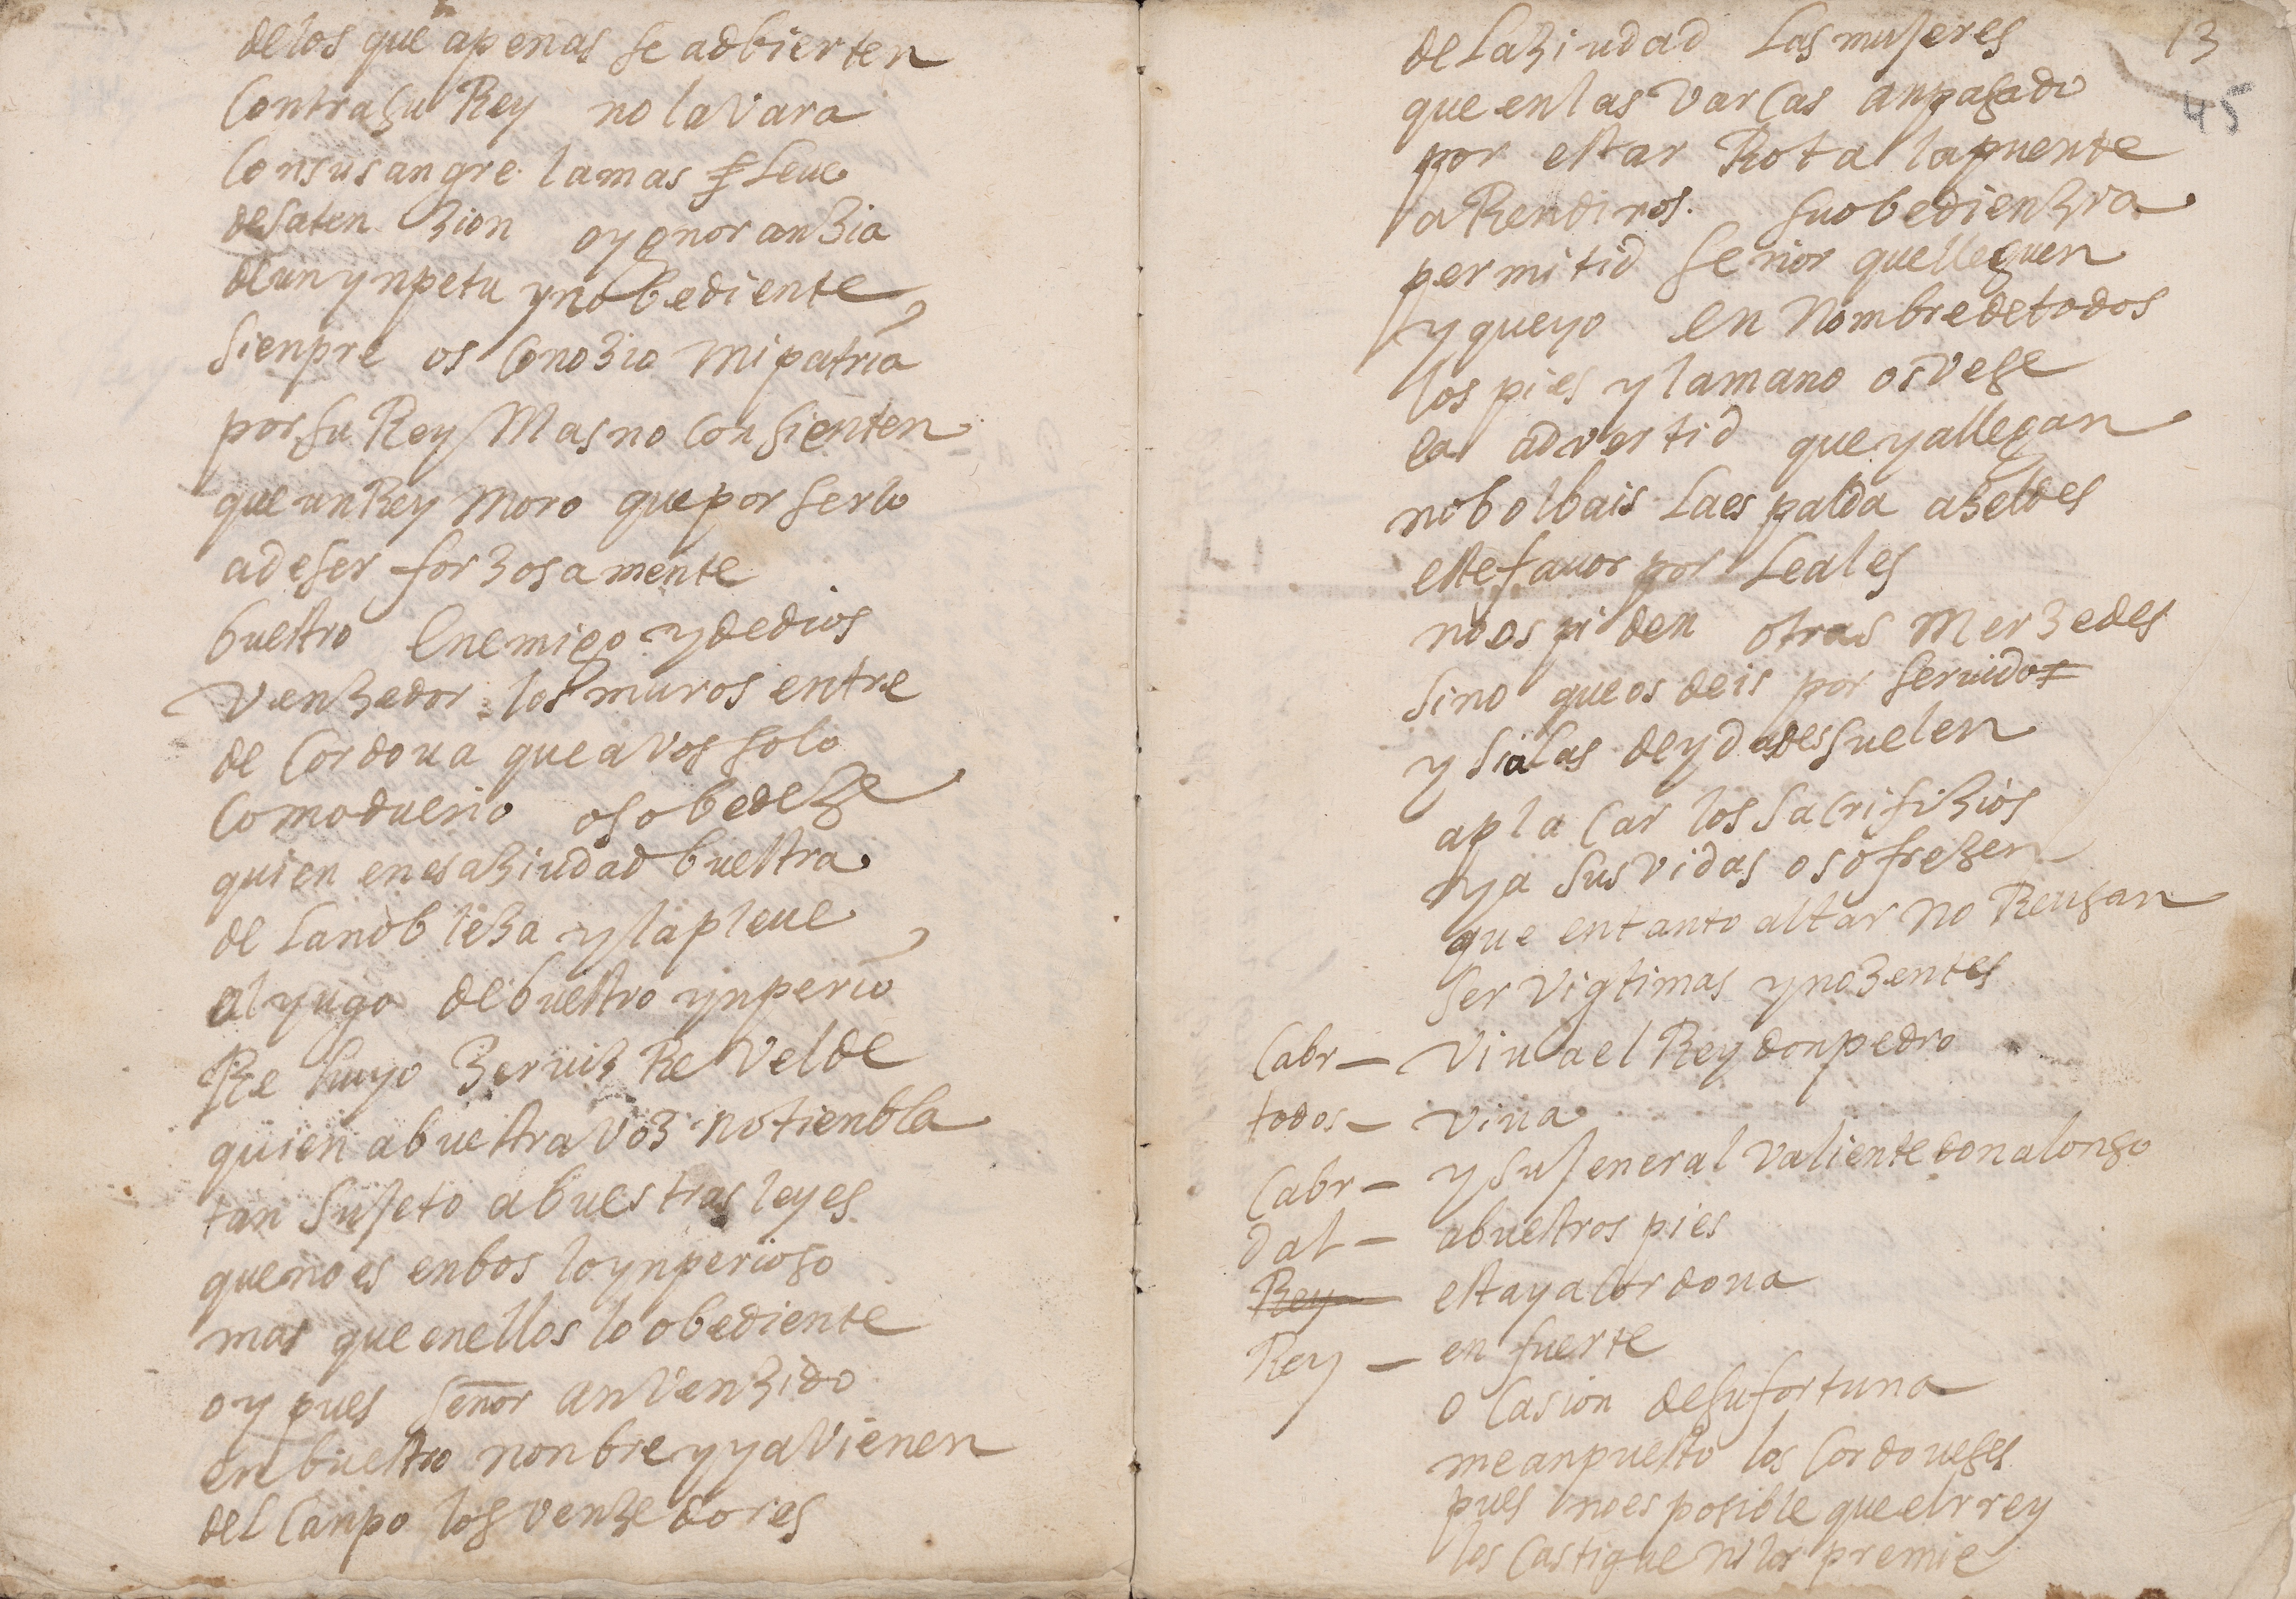 delos que apenas se adbierten
Contra su Rey no lavara
Consusangre la mas Leue
desaten zion oygnoranzia
deun ynpetu ynobediente
sienpre os Conozio mi patria
por su Rey Mas no consienten
que un Rey moro que por serlo
adeser forzosamente
buestro Enemigo y dedios
venzedor los muros entre
de Cordoua que avos solo
Como dueño os obedeze
quien en esa ziudad buestra
de La nobleza y la pleue
al yugo de buestro ynperio
Re huyo zerviz Revelde
quien abuestra voz no tienbla
tan sujeto abuestras leyes
que no es enbos lo ynperioso
mas que en ellos lo obediente
oy pues señor an venzido
en buestro nonbre y ya vienen
del Canpo los venzedores
13
45
de La ziudad Las mujeres
que en las varcas an pasado
por estar Rota la puente
a Rendiros su obedienzia
permitid señor que lleguen
y que yo en Nombre de todos
los pies y la mano os vese
ea advertid que ya llegan
no bolbais La espalda azeldes
este fauor por Leales
no os piden otras merzedes
sino que os deis por seruido
y si a las deydades suelen
aplacar los sacrifizios
ya sus vidas os ofrezen
que en tanto altar no Reusan
ser vigtimas ynozentes
Cabr — viua el Rey don pedro
todos — viua
Cabr — y su jeneral valiente don alonso
dal — abuestros pies
Rey esta ya Cordoua
Rey — en fuerte
o Casion de su fortuna
me an puesto los Cordoueses
pues no es posible que el rrey
los Castigue ni los premie